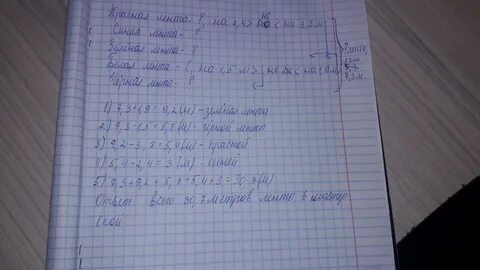 Красная лента - ?, на 2,4 > но < на 3,2 м
Синяя лента - ?
Зелёная лента - ?
Белая лента - ?, на 1,5 м > но
Чёрная лента - ?
7,3 м
1) 7,3+1,9=9,2(м)-зелёная лента
2) 7,3-1,5=5,8(м)-чёрной ленты
3) 9,2-3,8=5,4(м)-красной
4) 5,4-2,4=3(м)-синей
5) 7,3+9,2+5,8+5,4+3=30,7(м)
Ответ: всего 30,7 метров ленты в мастер
ской